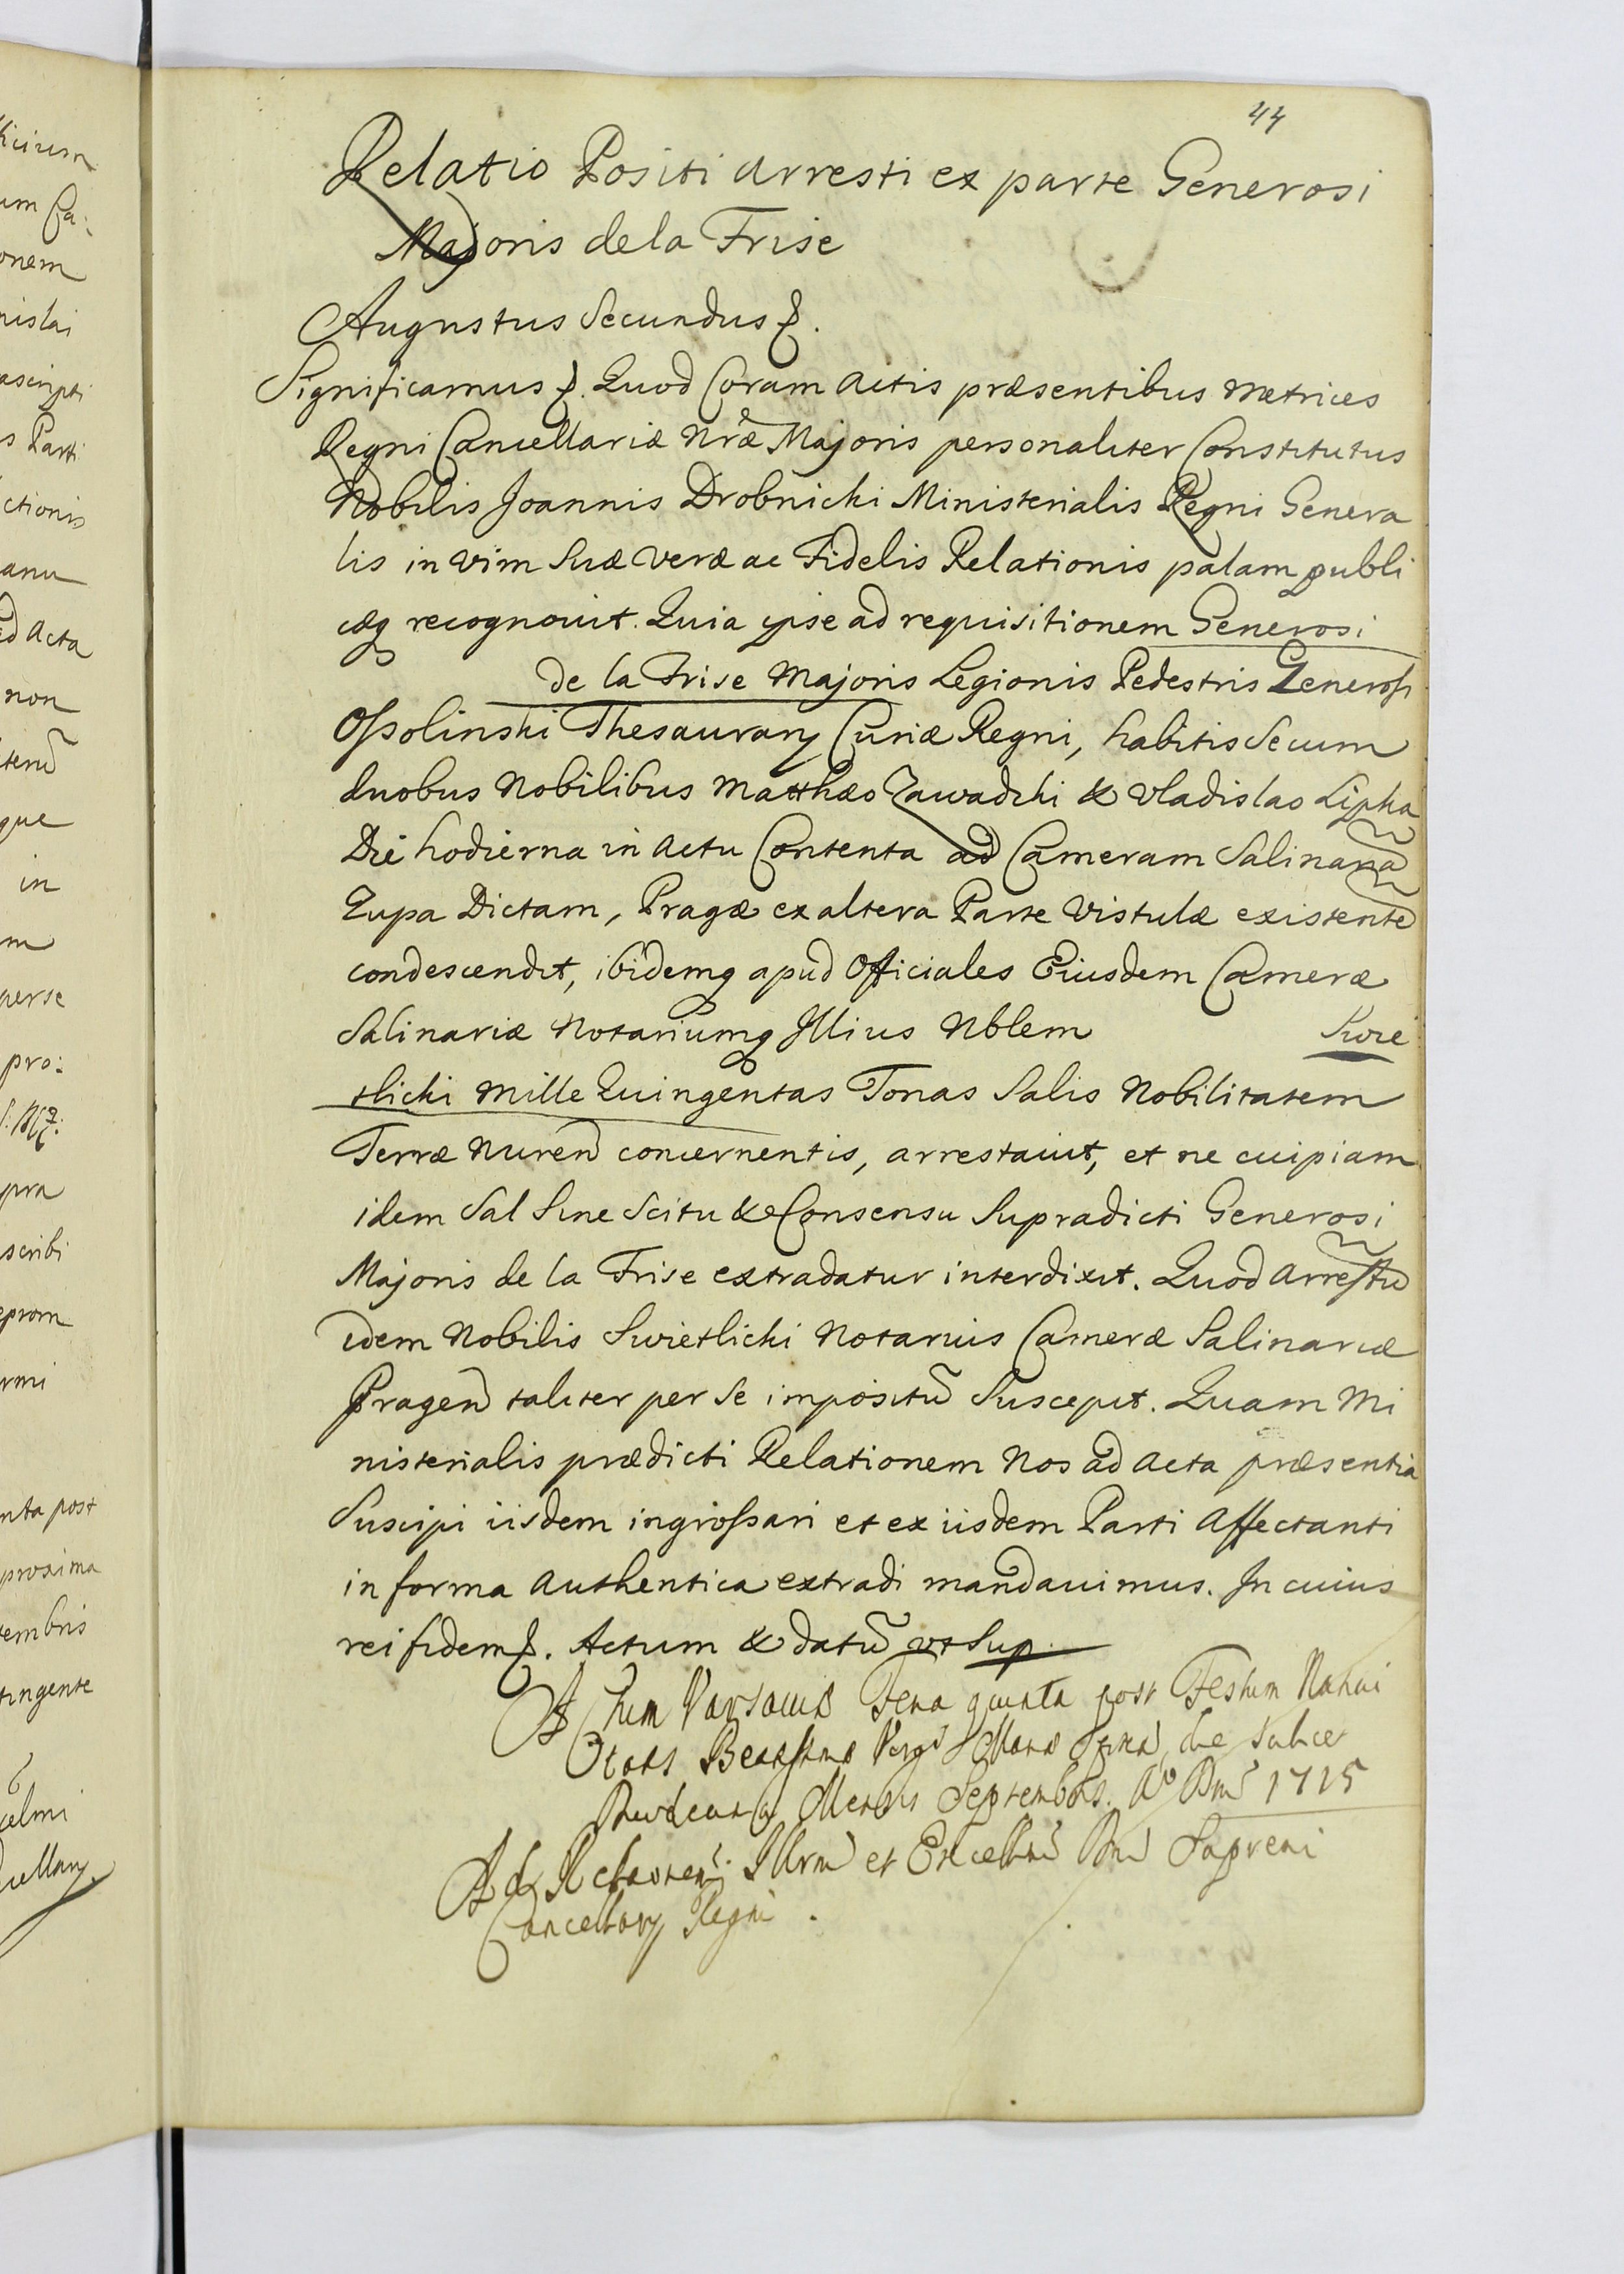 44
Relatio Positi arresti ex parte Generosi
Majoris de la Frise
Augustus Secundus
Significamus Quod Coram actis præsentibus metrices
Regni Cancellariæ nrãe Majoris personaliter Constitutus
Nobilis Joannis Drobnicki Ministerialis Regni Genera
lis in vim suæ veræ ac Fidelis Relationis palam publi
cæq recognouit. Quia ipse ad requisitionem Generosi
de la Frise Majoris Legionis Pedestris Generosi
Ossolinski Thesaurarij Curiæ Regni, habitis secum
duobus Nobilibus Matthæo Zawadzki & Vladislao Lipka
Die hodierna in actu Contenta ad Cameram Salinariã
Zupa Dictam, Pragæ ex altera Parte Vistulæ existentẽ
condescendit, ibidemq apud Officiales Eiusdem Cameræ
Salinariæ Notariumq Illius Nblem Swie
tlicki mille Quingentas Tonas Salis Nobilitatem
Terræ Nureñ concernentis, arrestauit, et ne cuipiam
idem Sal sine scitu & Consensu supradicti Generosi
Majoris de la Frise extradatur interdixit. Quod arrestũ
idem Nobilis Swietlicki Notarius Cameræ Salinariæ
Prageñ taliter per se impositũ suscepit. Quam Mi
nisterialis prædicti Relationem Nos ad acta præsentia
suscipi iisdem ingrossari et ex iisdem Parti affectanti
in forma authentica extradi mandauimus. In cuius
rei fidem. Actum & datũ ut sup
Actum Varsaviæ Feria quinta post Festum Natiui
tatis Beatissimæ Virgs Mariæ die
Mensis Septembris. Aº Dni 1715
Ad Relationem Illrmi et Excellmi Dni Supremi
Cancellarij Regni.